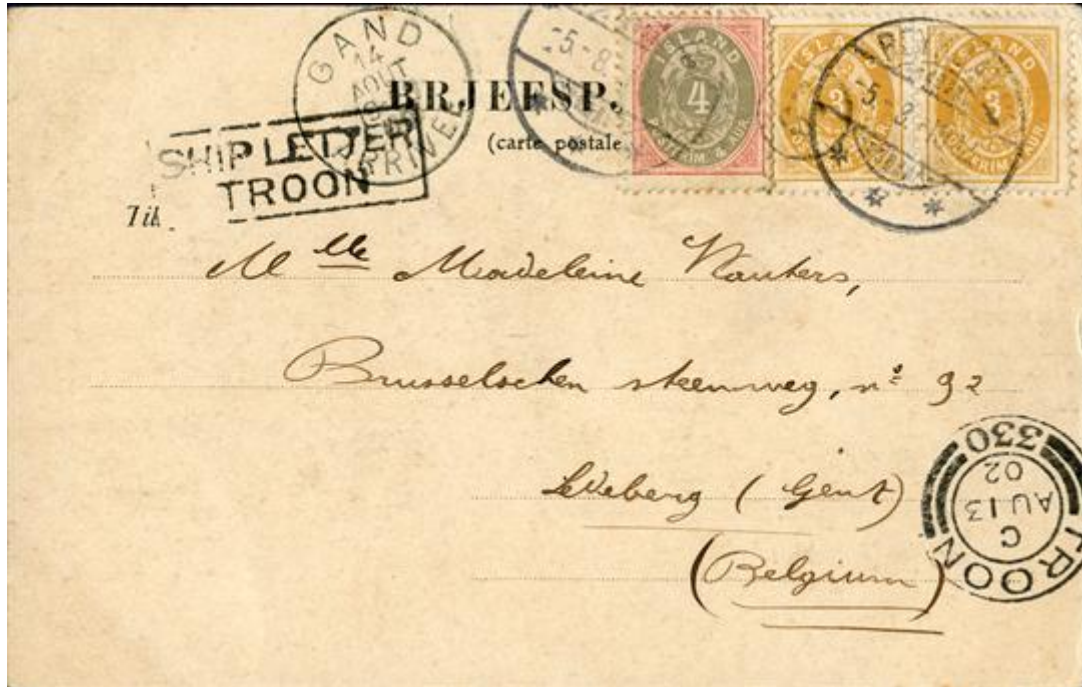 GAND
14
AOUT
ARRIVEE
BRJEFSP.
(carte postale
SHIP LETTER
TROON
Til
ISLAND
4
ISLAND
3
ISLAND
3
5-8
Mlle Madeleine Wauters,
Brusselschen steenweg, nº 92
Ledeberg (Gent)
(Belgium)
TROON
C
AU 13
02
330